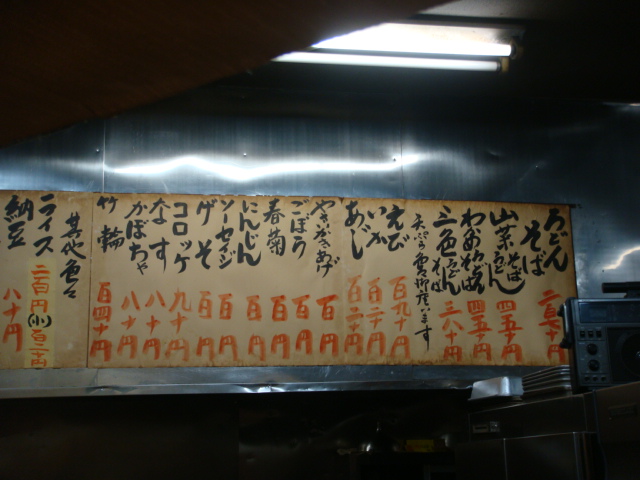 うどん
そば 二百七十円
山菜そばうどん 四百五十円
わかめそばうどん 四百五十円
三色そばうどん 三百八十円
えび 百九十円
いか 百二十円
あじ 百二十円
やさいかきあげ 百円
ごぼう 百円
春菊 百円
にんじん 百円
ソーセージ 百円
ゲソ 百円
コロッケ 九十円
なす 八十円
かぼちゃ 八十円
竹輪 百四十円
其他色々
ライス 二百円 (小)百二十円
納豆 八十円